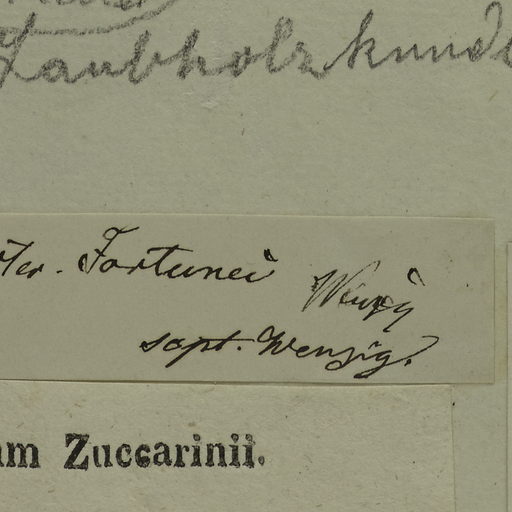 Laubholzkunde
ter. Fortunei Wenzig
scpt. Wenzig.
am Zuccarinii.